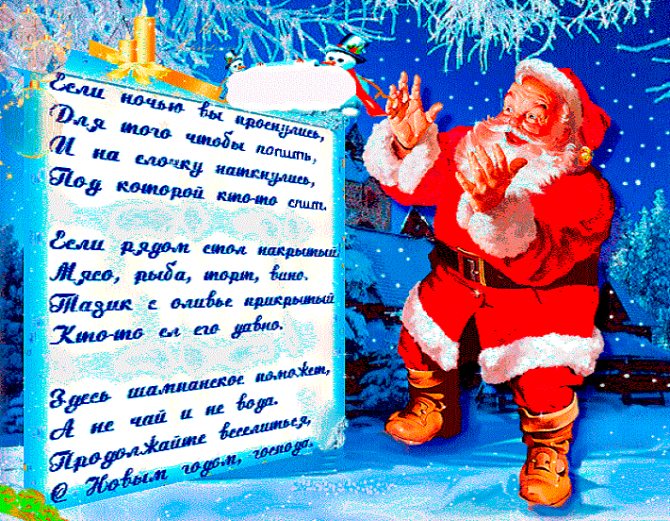 Если ночью вы проснулись,
Для того чтобы попить,
И на елочку наткнулись,
Под которой кто-то спит.
Если рядом стол накрытый
Мясо, рыба, торт, вино.
Тазик с оливье прикрытый
Кто-то ел его давно.
Здесь шампанское поможет,
А не чай и не вода.
Продолжайте веселиться,
С Новым годом, господа.